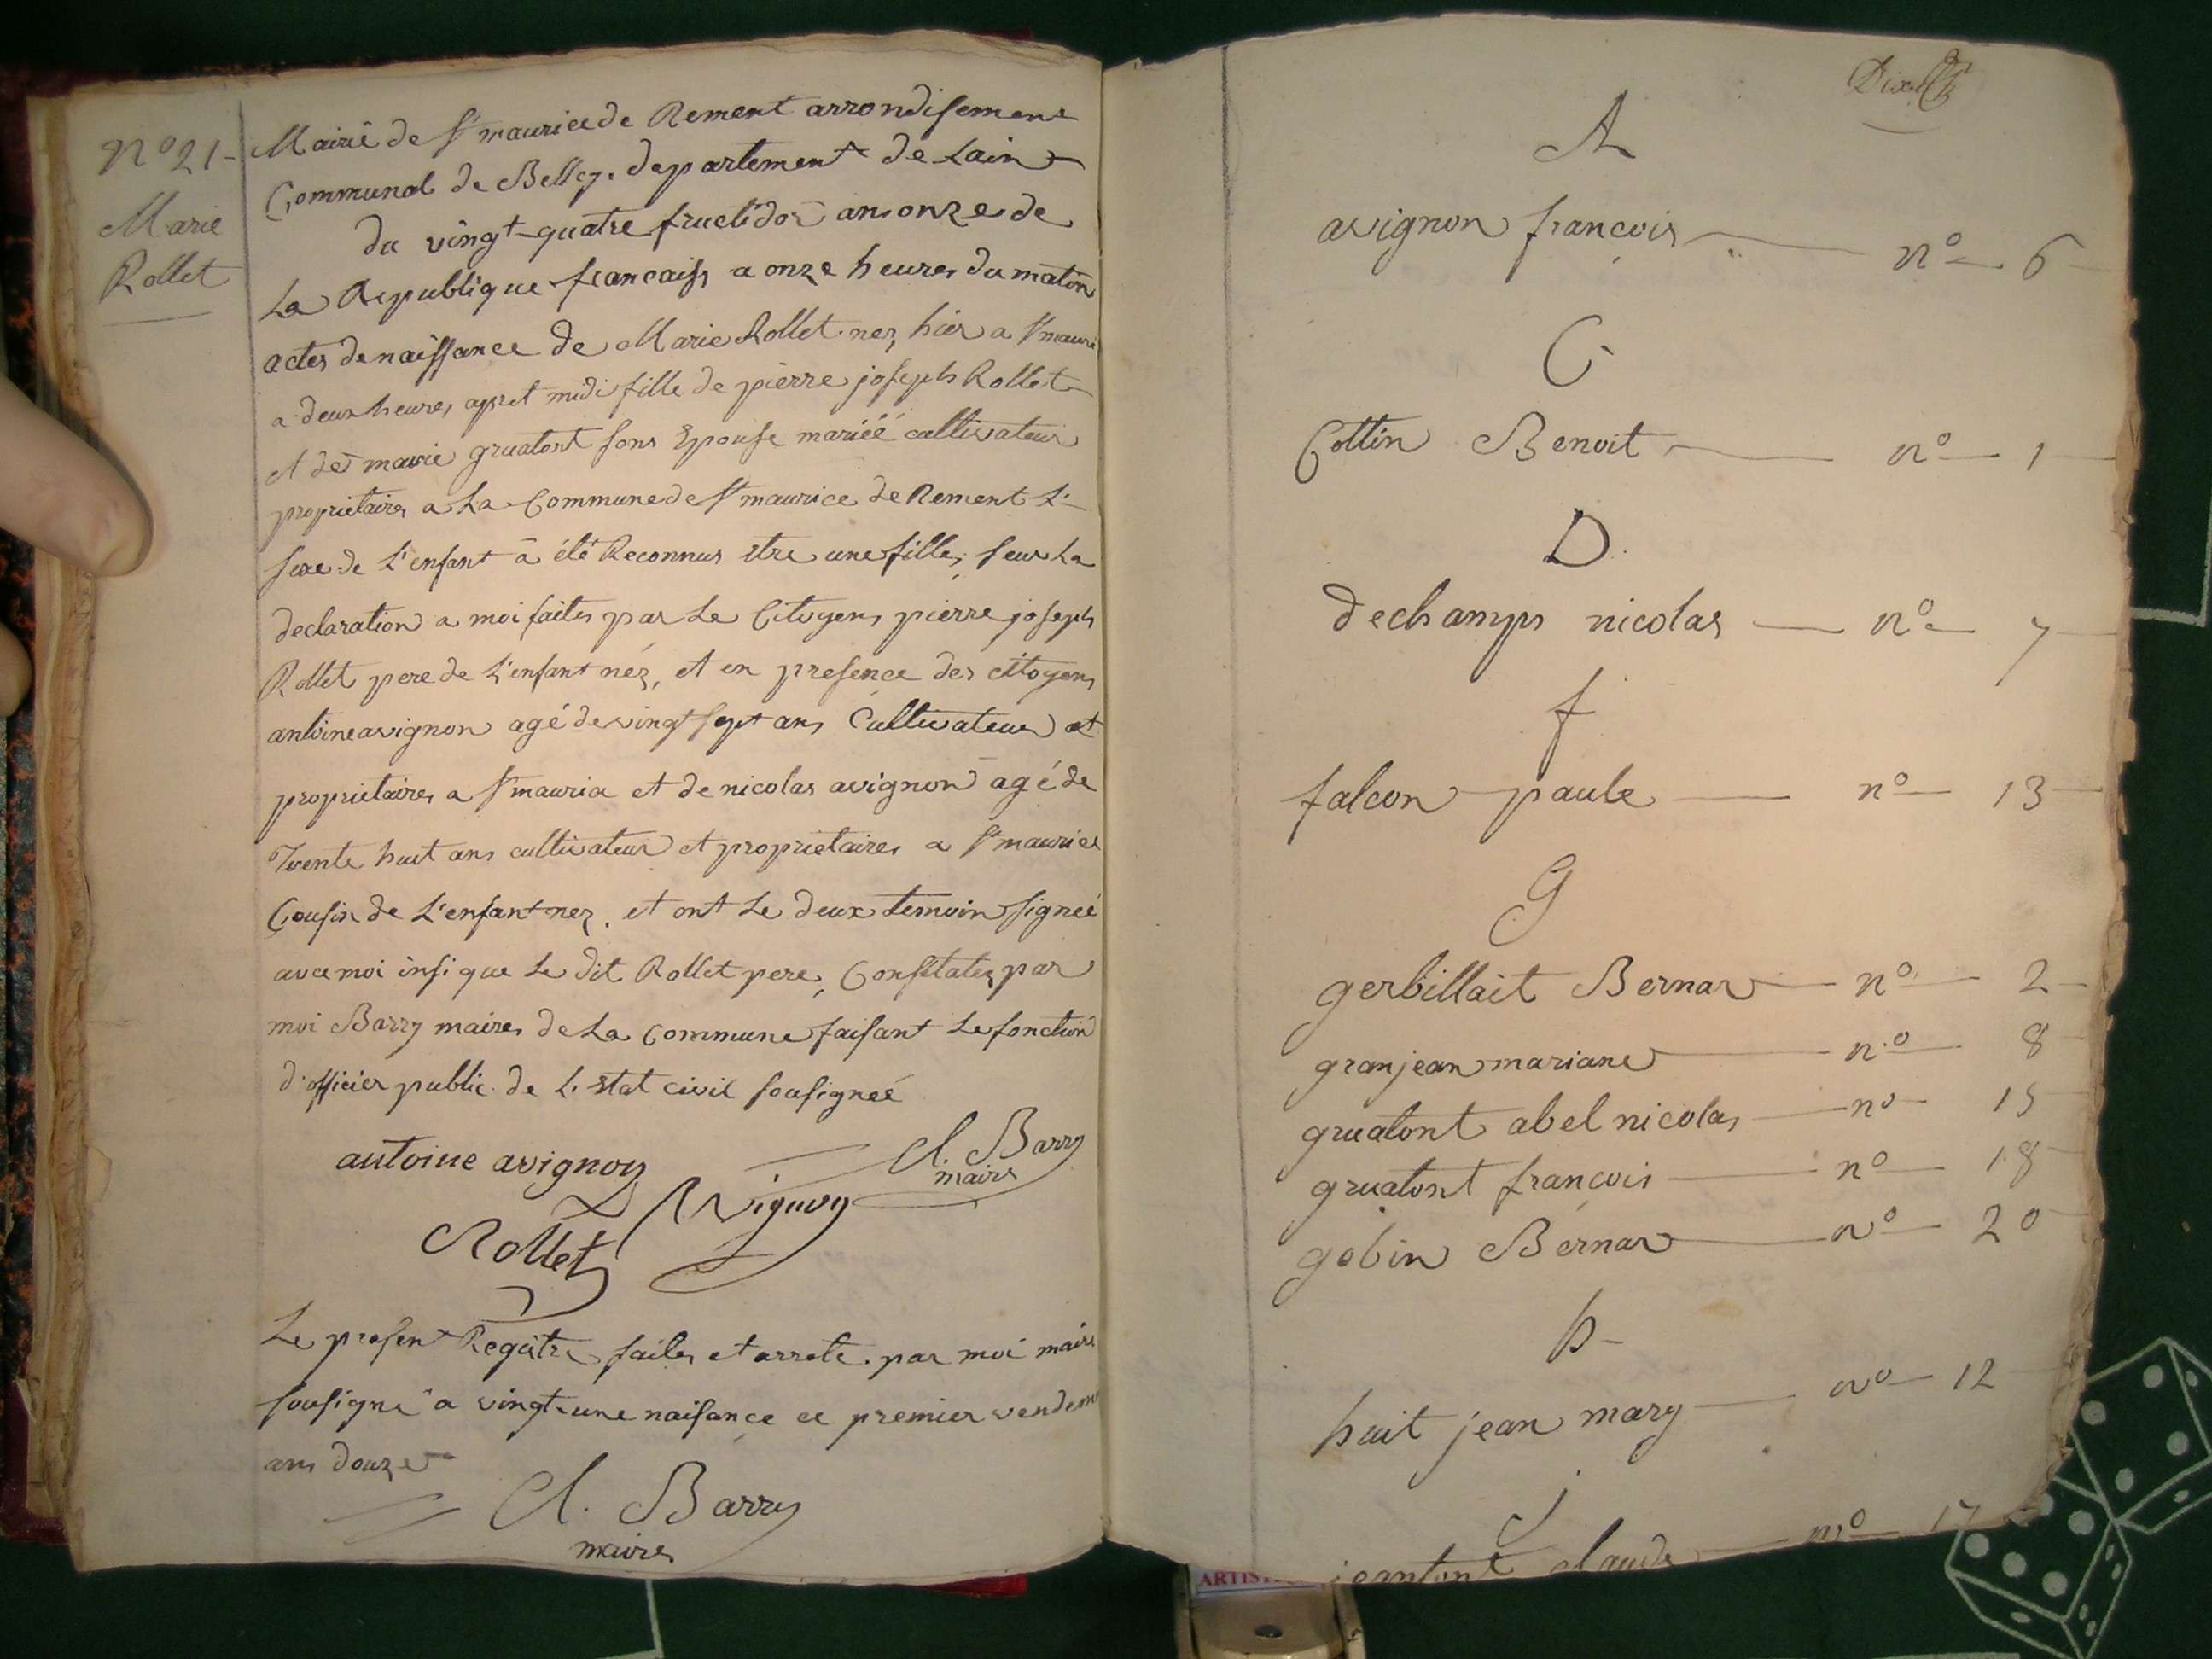 n° 21
Marie
Rollet
Mairie de St maurice de Rement arrondisement
Communal de Belley. departement de Lain
du vingt-quatre fructidor ans onze de
La Republique francaiss a onze heures du matin
actes de naissance de Marie Rollet nez hier a St mauri
a deux heures apret midi fille de pierre joseph Rollet
et de marie gruatont sons Epouse mariéé cultivateur
proprietaires a La Commune de St maurice de Rement Le
sexe de L'enfant à été Reconnus etre une fille, seur La
declaration a moi faites par Le Citoyens pierre joseph
Rollet pere de L'enfant néz, et en presence des citoyens
antoine avignon agé de vingt sept ans Cultivateur et
proprietaires a St maurice et de nicolas avignon agé de
Trente huit ans cultivateur et proprietaires a St maurice
Cousin de L'enfant nez. et ont Le deux temoin signeé
avce moi insi que Le dit Rollet pere, Constatez par
moi Barry maires de La Commune faisant Le fonction
d'officier public de L'Etat civil sousigneé
antoine avignon
Cl. Barry
maire
Avignon
Rollet
Le present Regitre faites et arrete. par moi maire
sousigne a vingt-une naisance ce premier vendem
ans douze
Cl. Barry
maires
A
avignon françois n° 6
C
Cottin Benoit n° 1
D
dechamps nicolas n° 7
f
falcon paule n° 13
G
gerbillait Bernar n° 2
granjean mariane n° 8
gruatont abel nicolas n° 15
gruatont françois n° 18
gobin Bernar n° 20
h
huit jean mary n° 12
j
jeantont claude n° 17
ARTIS